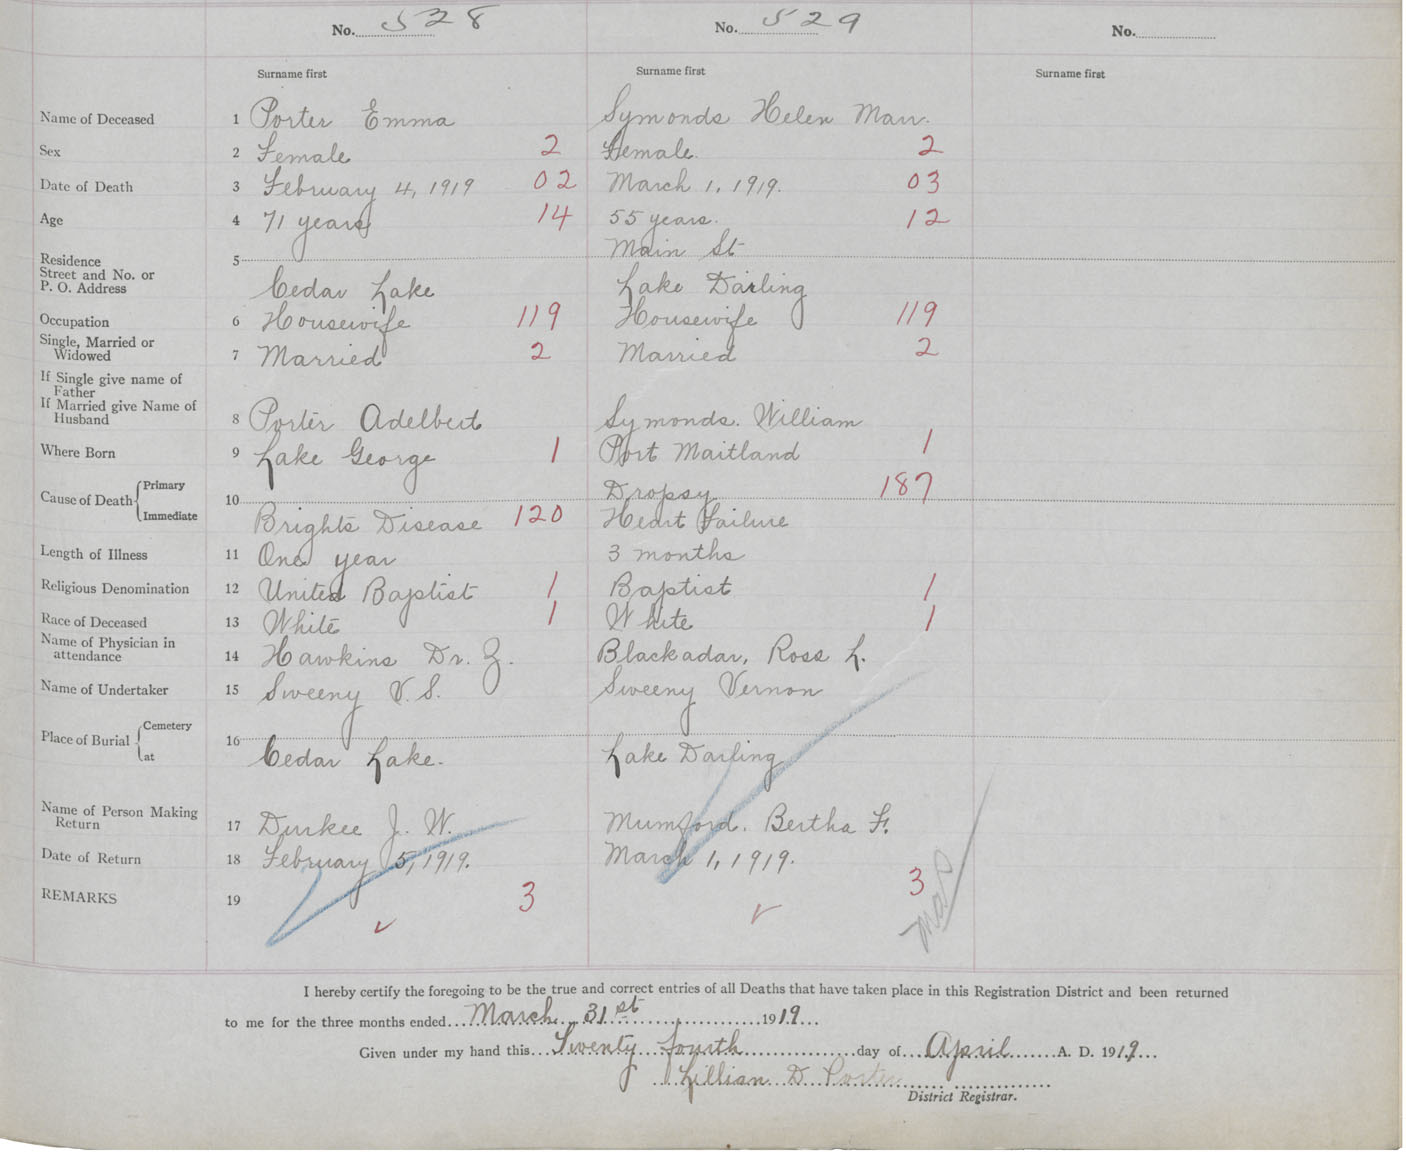 No. 528 No. 529 No.
Surname first Surname first Surname first
Name of Deceased 1 Porter Emma Symonds Helen Marr.
Sex 2 Female 2 Female. 2
Date of Death 3 February 4, 1919 02 March 1, 1919. 03
Age 4 71 years 14 55 years. 12
Residence 5 Main St
Street and No. or
P. O. Address Cedar Lake Lake Darling
Occupation 6 Housewife 119 Housewife 119
Single, Married or
Widowed 7 Married 2 Married 2
If Single give name of
Father
If Married give Name of
Husband 8 Porter Adelbert Symonds. William
Where Born 9 Lake George 1 Port Maitland 1
Cause of Death Primary 10 Dropsy 187
Immediate Brights Disease 120 Heart Failure
Length of Illness 11 One year 3 months
Religious Denomination 12 United Baptist 1 Baptist 1
Race of Deceased 13 White 1 White 1
Name of Physician in
attendance 14 Hawkins Dr. Z. Blackadar, Ross L.
Name of Undertaker 15 Sweeny V. S. Sweeny Vernon
Place of Burial Cemetery 16
at Cedar Lake. Lake Darling
Name of Person Making
Return 17 Durkee J. W. Mumford. Bertha F.
Date of Return 18 February 5, 1919. March 1, 1919.
REMARKS 19 3 3
I hereby certify the foregoing to be the true and correct entries of all Deaths that have taken place in this Registration District and been returned
to me for the three months ended March 31st 1919
Given under my hand this Twenty fourth day of April A. D. 1919
Lillian D Porter
District Registrar.